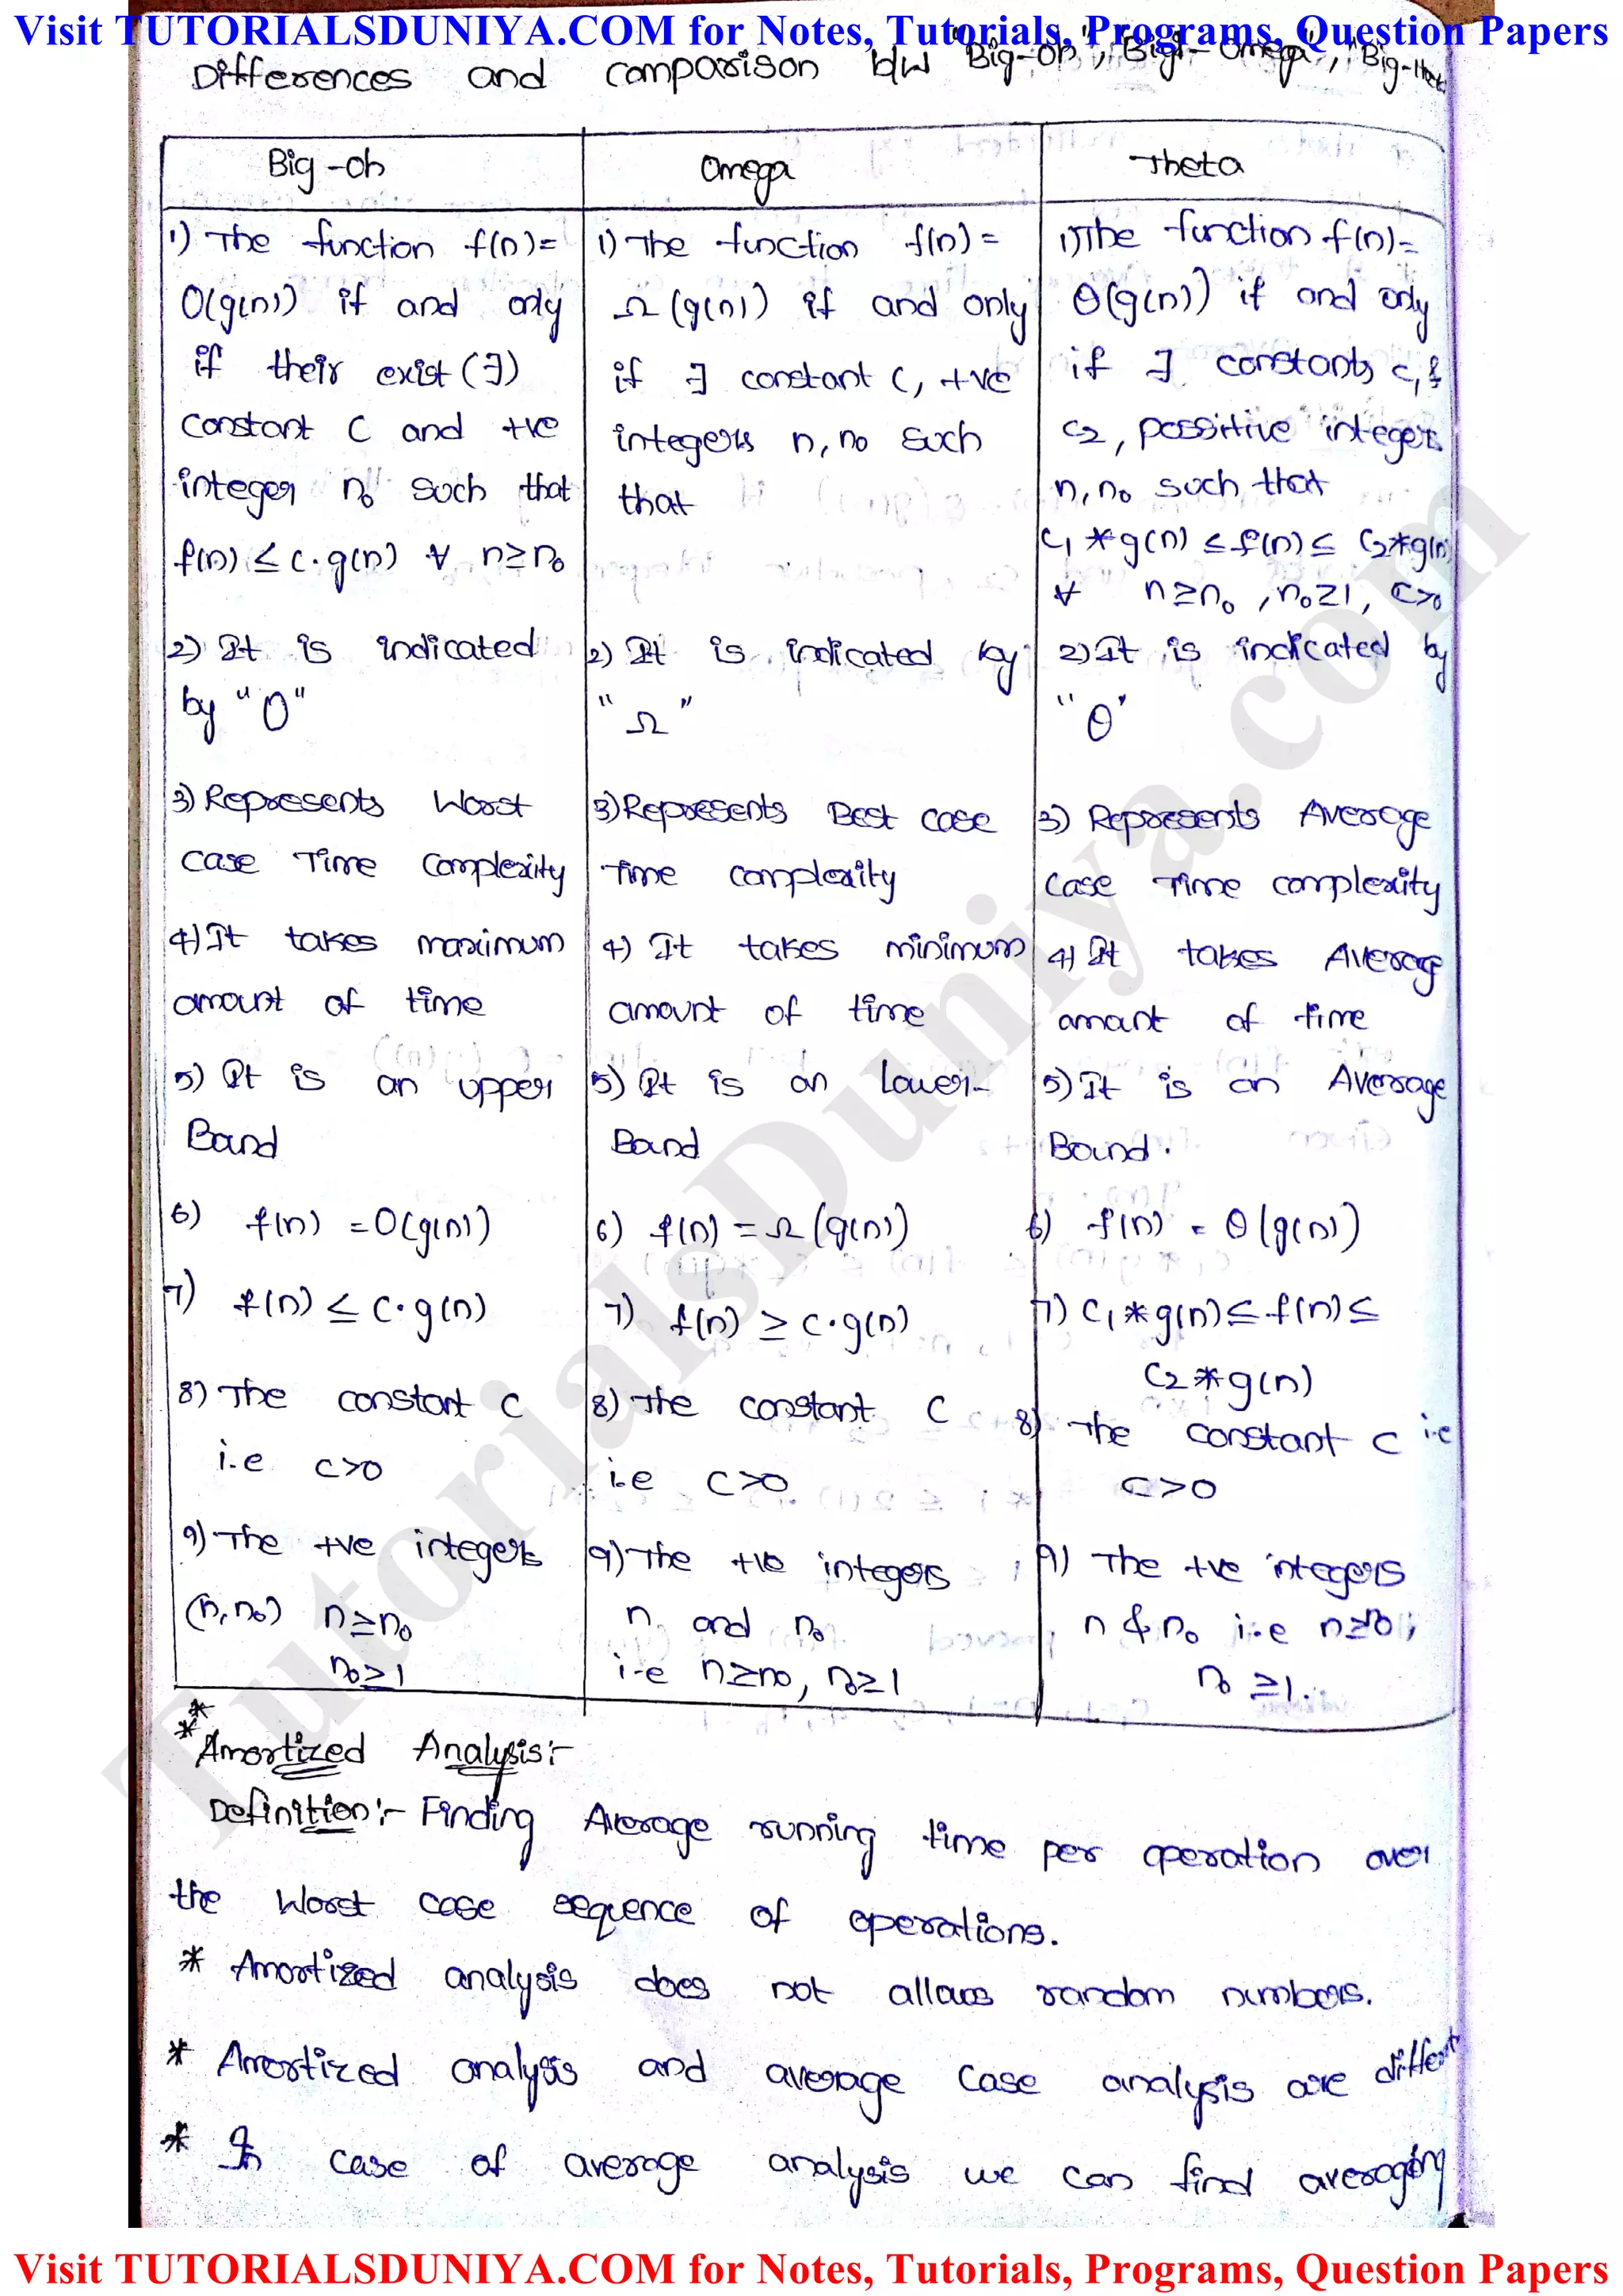 Visit TUTORIALSDUNIYA.COM for Notes, Tutorials, Programs, Question Papers
Differences and comparison b/w "Big-oh", "Big-Omega", "Big-theta
Big-oh
1) The function f(n)=
O(g(n)) if and only
if their exist (∃)
constant C and +ve
integer n₀ such that
f(n) ≤ c.g(n) ∀ n≥n₀
2) It is indicated
by "O"
3) Represents Worst
case Time Complexity
4) It takes maximum
amount of time
5) It is an upper
Bound
6) f(n) = O(g(n))
7) f(n) ≤ c.g(n)
8) The constant c
i.e c>0
9) The +ve integers
(n, n₀) n≥n₀
n₀≥1
Omega
1) The function f(n) =
Ω(g(n)) if and only
if ∃ constant C, +ve
integers n, n₀ such
that
2) It is indicated by
"Ω"
3) Represents Best case
Time complexity
4) It takes minimum
amount of time
5) It is an Lower-
Bound
6) f(n) = Ω(g(n))
7) f(n) ≥ c.g(n)
8) The constant C
i.e C>0
9) The +ve integers
n and n₀
i.e n≥n₀, n₀≥1
Theta
1) The function f(n)=
Θ(g(n)) if and only
if ∃ constants c₁ &
c₂, possitive integers
n, n₀ such that
C₁*g(n) ≤ f(n) ≤ C₂*g(n)
∀ n≥n₀, n₀≥1, C>0
2) It is indicated by
"Θ'
3) Represents Average
case Time complexity
4) It takes Average
amount of time
5) It is an Average
Bound.
6) f(n) = Θ(g(n))
7) C₁*g(n) ≤ f(n) ≤
C₂*g(n)
8) The constant C i.e
C>0
9) The +ve integers
n & n₀ i.e n≥n₀,
n₀ ≥1.
** Amortized Analysis:-
Definition:- Finding Average running time per operation over
the Worst case sequence of operations.
* Amortized analysis does not allows random numbers.
* Amortized analysis and average case analysis are different
* In case of average analysis we can find averaging
TutorialsDuniya.com
Visit TUTORIALSDUNIYA.COM for Notes, Tutorials, Programs, Question Papers